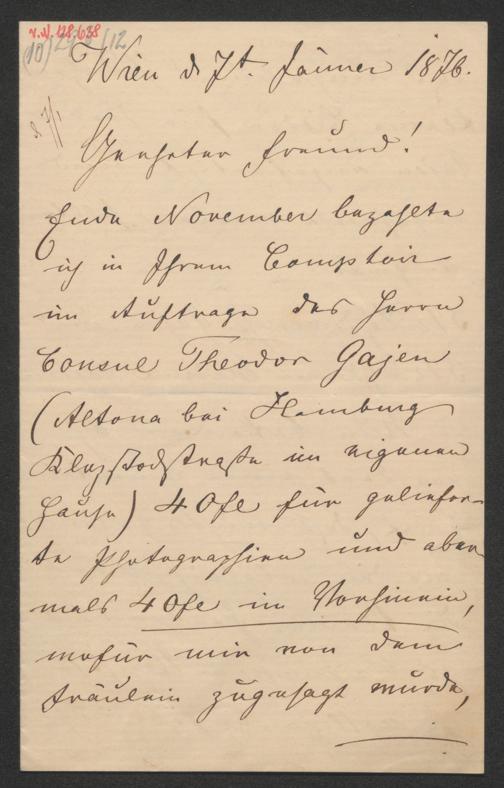 V.N. 128.638
(10)
Wien d 7t. Jänner 1876.
Geehrter Freund!
Ende November bezahlte
ich in Ihrem Comptoir
im Auftrage des Herrn
Consul Theodor Gajen
(Altona bei Hamburg
Klopstockstraße im eigenen
Hause) 40 fl für geliefer-
te Photographien und aber-
mals 40 fl im Vorhinein,
wofür mir von dem
Fräulein zugesagt wurde,